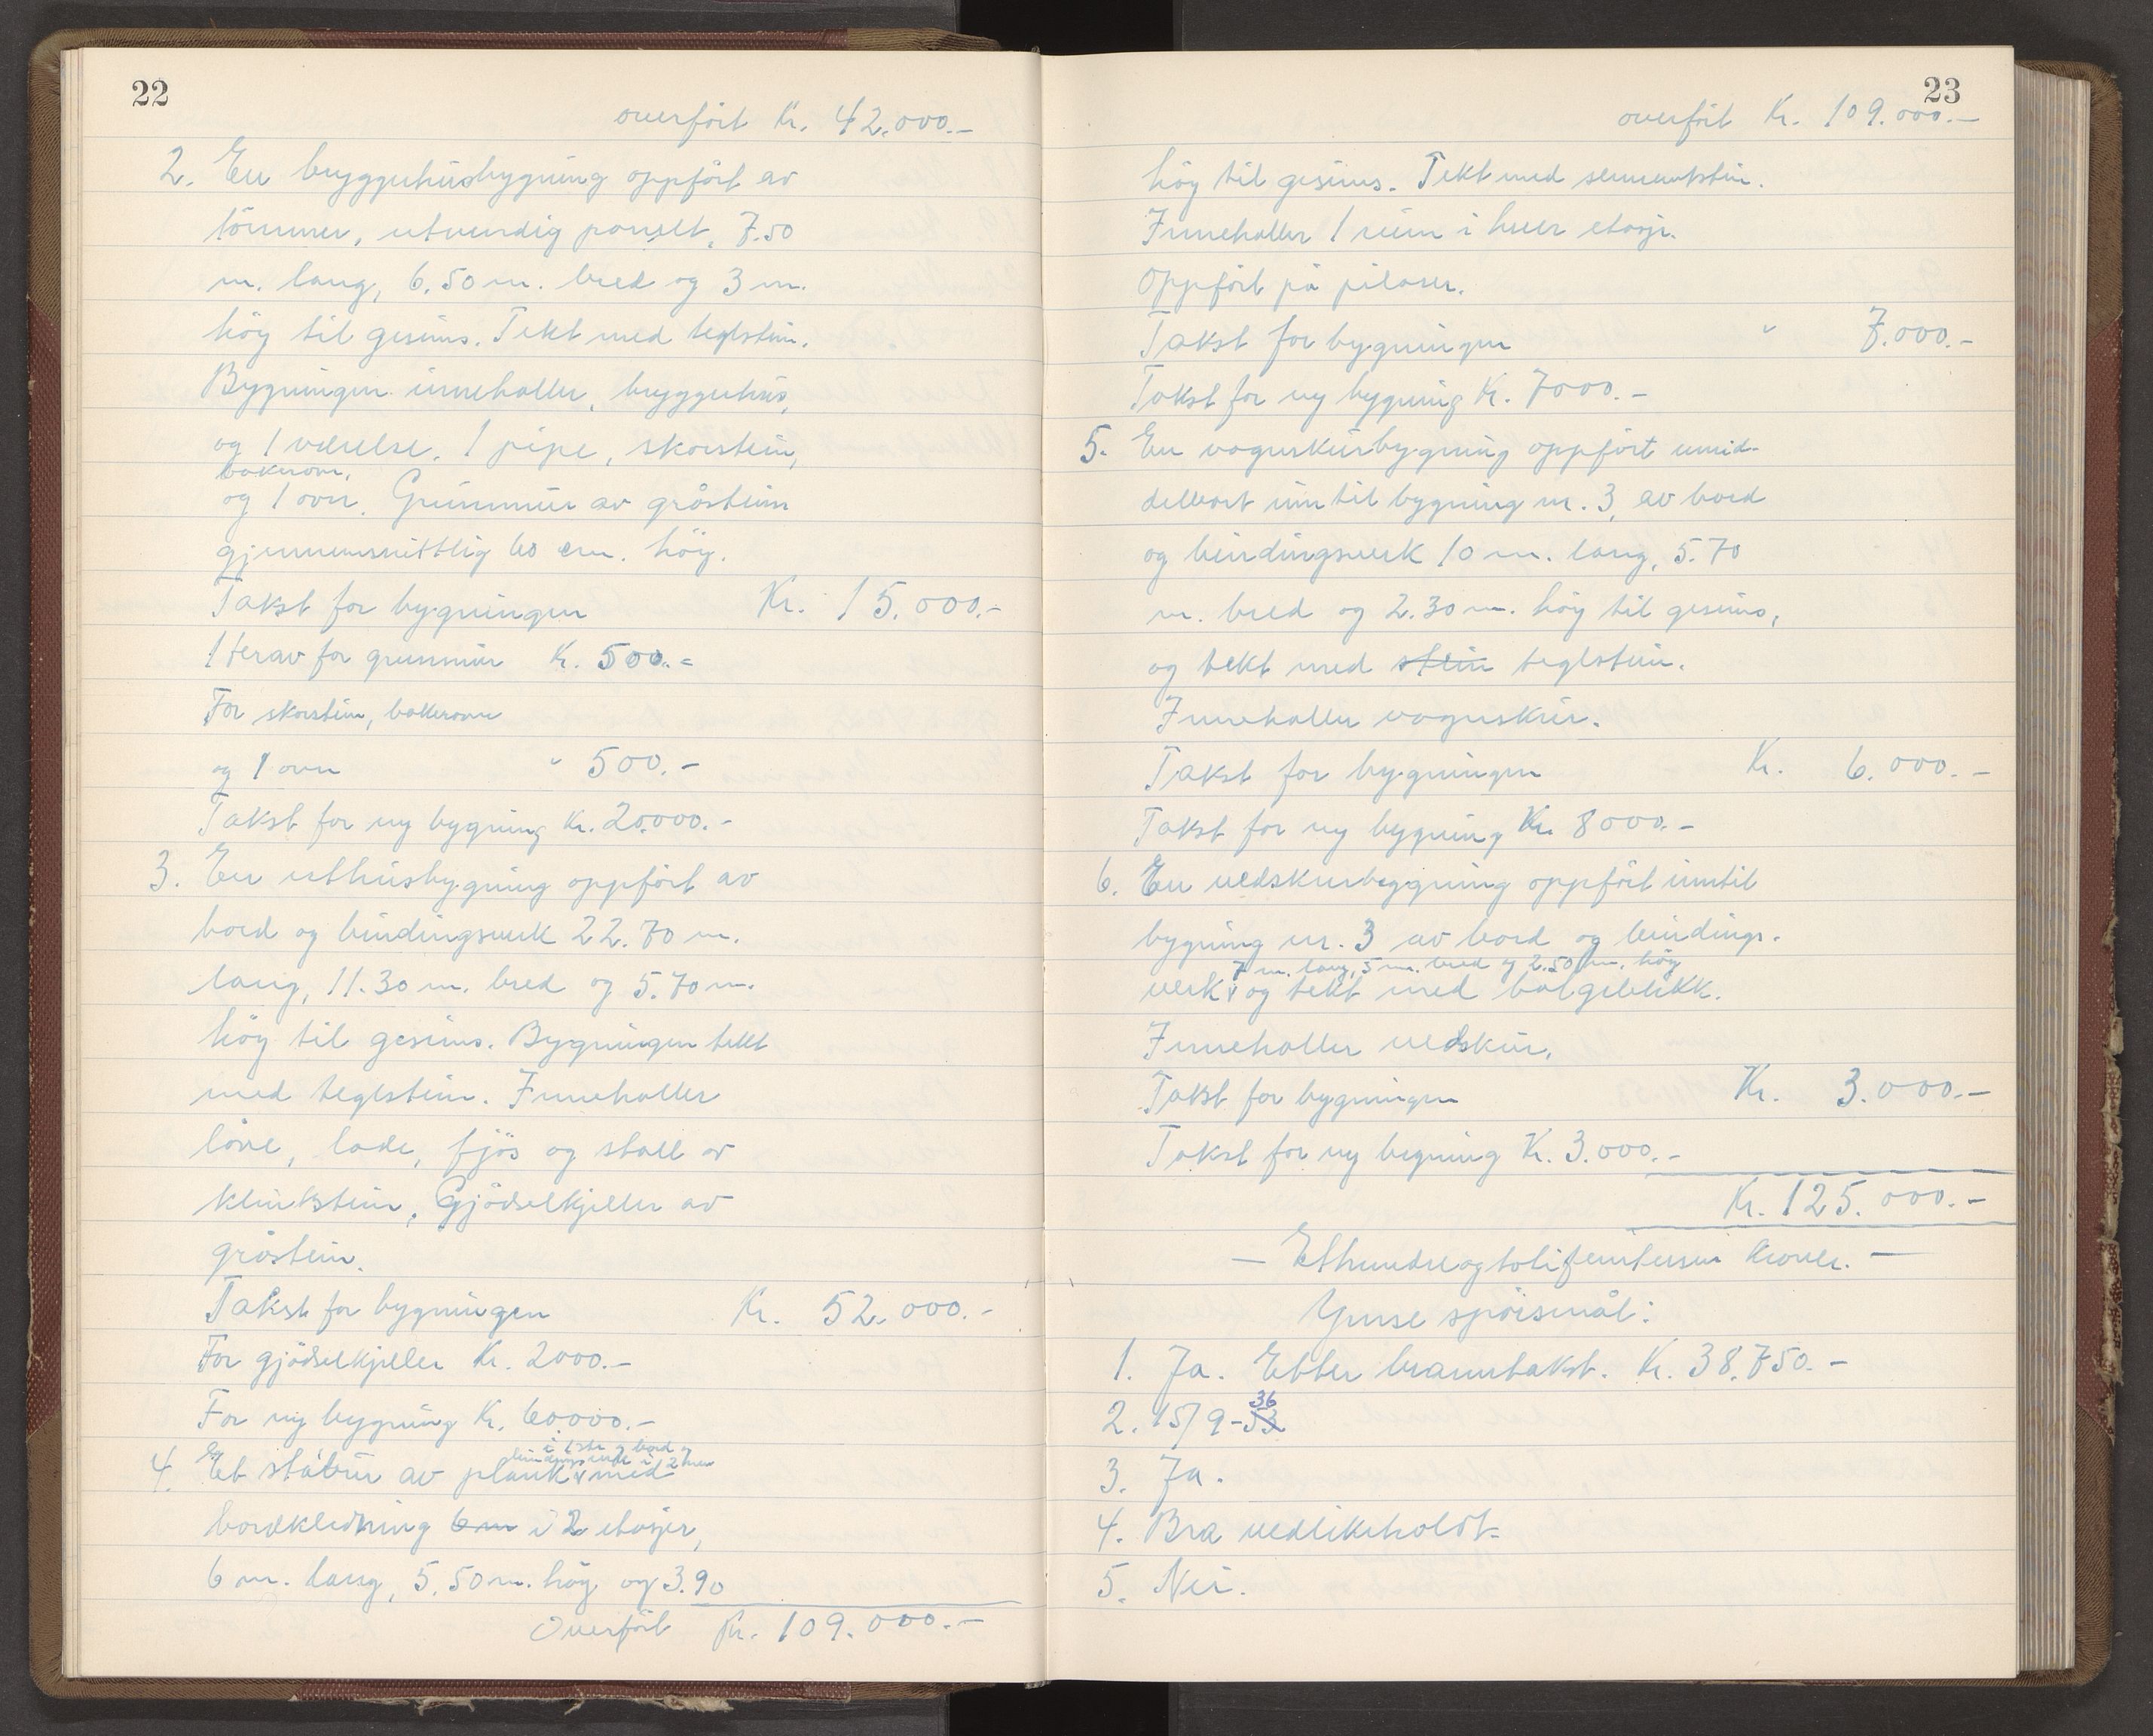 22
overført Kr. 42.000.-
2. En bryggerhusbygning oppført av
tømmer, utvendig panelt, 7.50
m. lang, 6.50 m. bred og 3 m.
høy til gesims. Tekt med teglstein.
Bygningen inneholler, bryggerhus,
og 1 værelse. 1 pipe, skorstein,
bakerovn,
og 1 ovn. Grunnmur av gråstein
gjennemsnittlig 60 cm. høy.
Takst for bygningen Kr. 15.000.-
Herav for grunnmur Kr. 500.=
For skorstein, bakerovn
og 1 ovn " 500.-
Takst for ny bygning Kr. 20.000.-
3. En uthusbygning oppført av
bord og bindingsverk 22.70 m.
lang, 11.30 m. bred og 5.70 m.
høy til gesims. Bygningen tekt
med teglstein. Inneholler
låve, lade, fjøs og stall av
klinkstein, Gjødselkjeller av
gråstein.
Takst for bygningen Kr. 52.000.-
For gjødselkjeller Kr. 2000.-
For ny bygning Kr. 60.000.-
i 1ste og bord og
bindingsverk i 2nen
4. Et stabur av plank x med
bordkledning 6 m i 2 etasjer,
6 m. lang, 5.50 m. høy og 3.90
Overført Kr. 109.000.-
23
overført Kr. 109.000.-
høy til gesims. Tekt med sementstein.
Inneholler 1 rum i hver etasje.
Oppført på pilarer.
Takst for bygningen " 7.000.-
Takst for ny bygning Kr. 7000.-
5. En vognskurbygning oppført umid-
delbart inn til bygning nr. 3, av bord
og bindingsverk 10 m. lang, 5.70
m. bred og 2.30 m. høy til gesims,
og tekt med stein teglstein.
Inneholler vognskur.
Takst for bygningen Kr. 6.000.-
Takst for ny bygning Kr. 8000.-
6. En vedskurbygning oppført inntil
bygning nr. 3 av bord og bindings-
7 m. lang, 5 m. bred og 2.50 m. høy
verk x og tekt med bølgeblikk.
Inneholler vedskur.
Takst for bygningen Kr. 3.000.-
Takst for ny bygning Kr. 3.000.-
Kr. 125.000.-
- Ethundreogtolifemtusen kroner. -
Ymse spørsmål:
1. Ja. Etter branntakst. Kr. 38.750.-
36
2. 15/9-53
3. Ja.
4. Bra vedlikeholdt.
5. Nei.